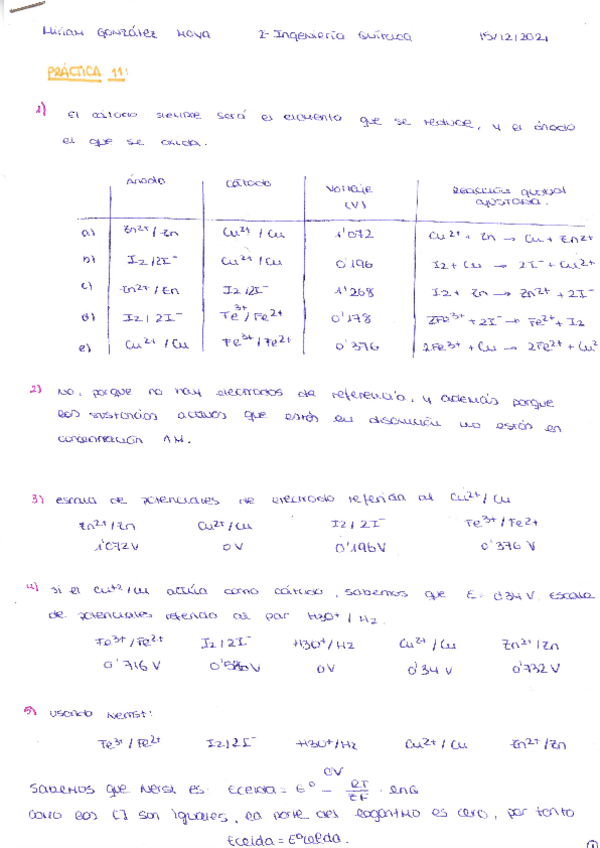 Miriam González Moya 2- Ingeniería Química 15/12/2021
PRÁCTICA 11:
1) El cátodo siempre será el elemento que se reduce, y el ánodo
el que se oxida.
Ánodo Cátodo Voltaje (V) Reacción global ajustada.
a) Zn2+/Zn Cu2+/Cu 1'072 Cu2+ + Zn → Cu + Zn2+
b) I2/2I- Cu2+/Cu 0'196 I2 + Cu → 2I- + Cu2+
c) Zn2+/Zn I2/2I- 1'268 I2 + Zn → Zn2+ + 2I-
d) I2/2I- Fe3+/Fe2+ 0'178 2Fe3+ + 2I- → Fe2+ + I2
e) Cu2+/Cu Fe3+/Fe2+ 0'376 2Fe3+ + Cu → 2Fe2+ + Cu2
2) No, porque no hay electrodos de referencia, y además porque
las sustancias activas que están en disolución no están en
concentración 1M.
3) escala de potenciales de electrodo referida al Cu2+/Cu
Zn2+/Zn Cu2+/Cu I2/2I- Fe3+/Fe2+
1'072V 0V 0'196V 0'376 V
4) si el Cu+2/Cu actúa como cátodo, sabemos que E= 0'34 V. Escala
de potenciales referida al par H3O+/H2.
Fe3+/Fe2+ I2/2I- H3O+/H2 Cu2+/Cu Zn2+/Zn
0'716 V V 0V 0'34 V 0'732 V
5) Usando Nernst:
Fe3+/Fe2+ I2/2I- H3O+/H2 Cu2+/Cu Zn2+/Zn
0V
Sabemos que Nerst es: Ecelda = E° - RT/ZF · lnQ
Como las [] son iguales, la parte del logaritmo es cero, por tanto
Ecelda = E°celda.